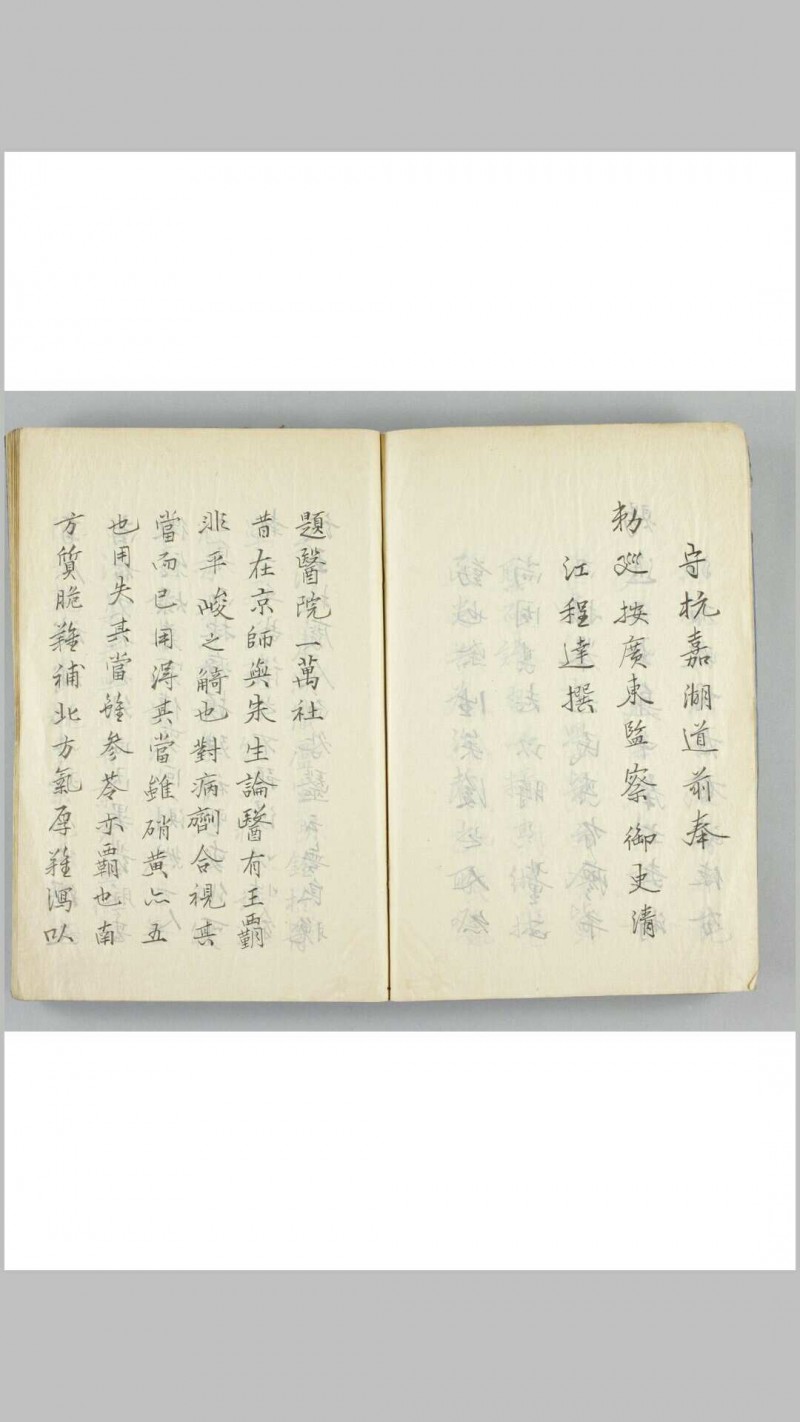 守杭嘉湖道前奉
勅巡按廣東監察御史清
江程達撰
題醫院一萬社
昔在京師與朱生論醫有王霸
非平峻之觭也對病劑合視其
當而已用得其當雖硝黃亦王
也用失其當雖參苓亦霸也南
方質脆難補北方氣厚難瀉以